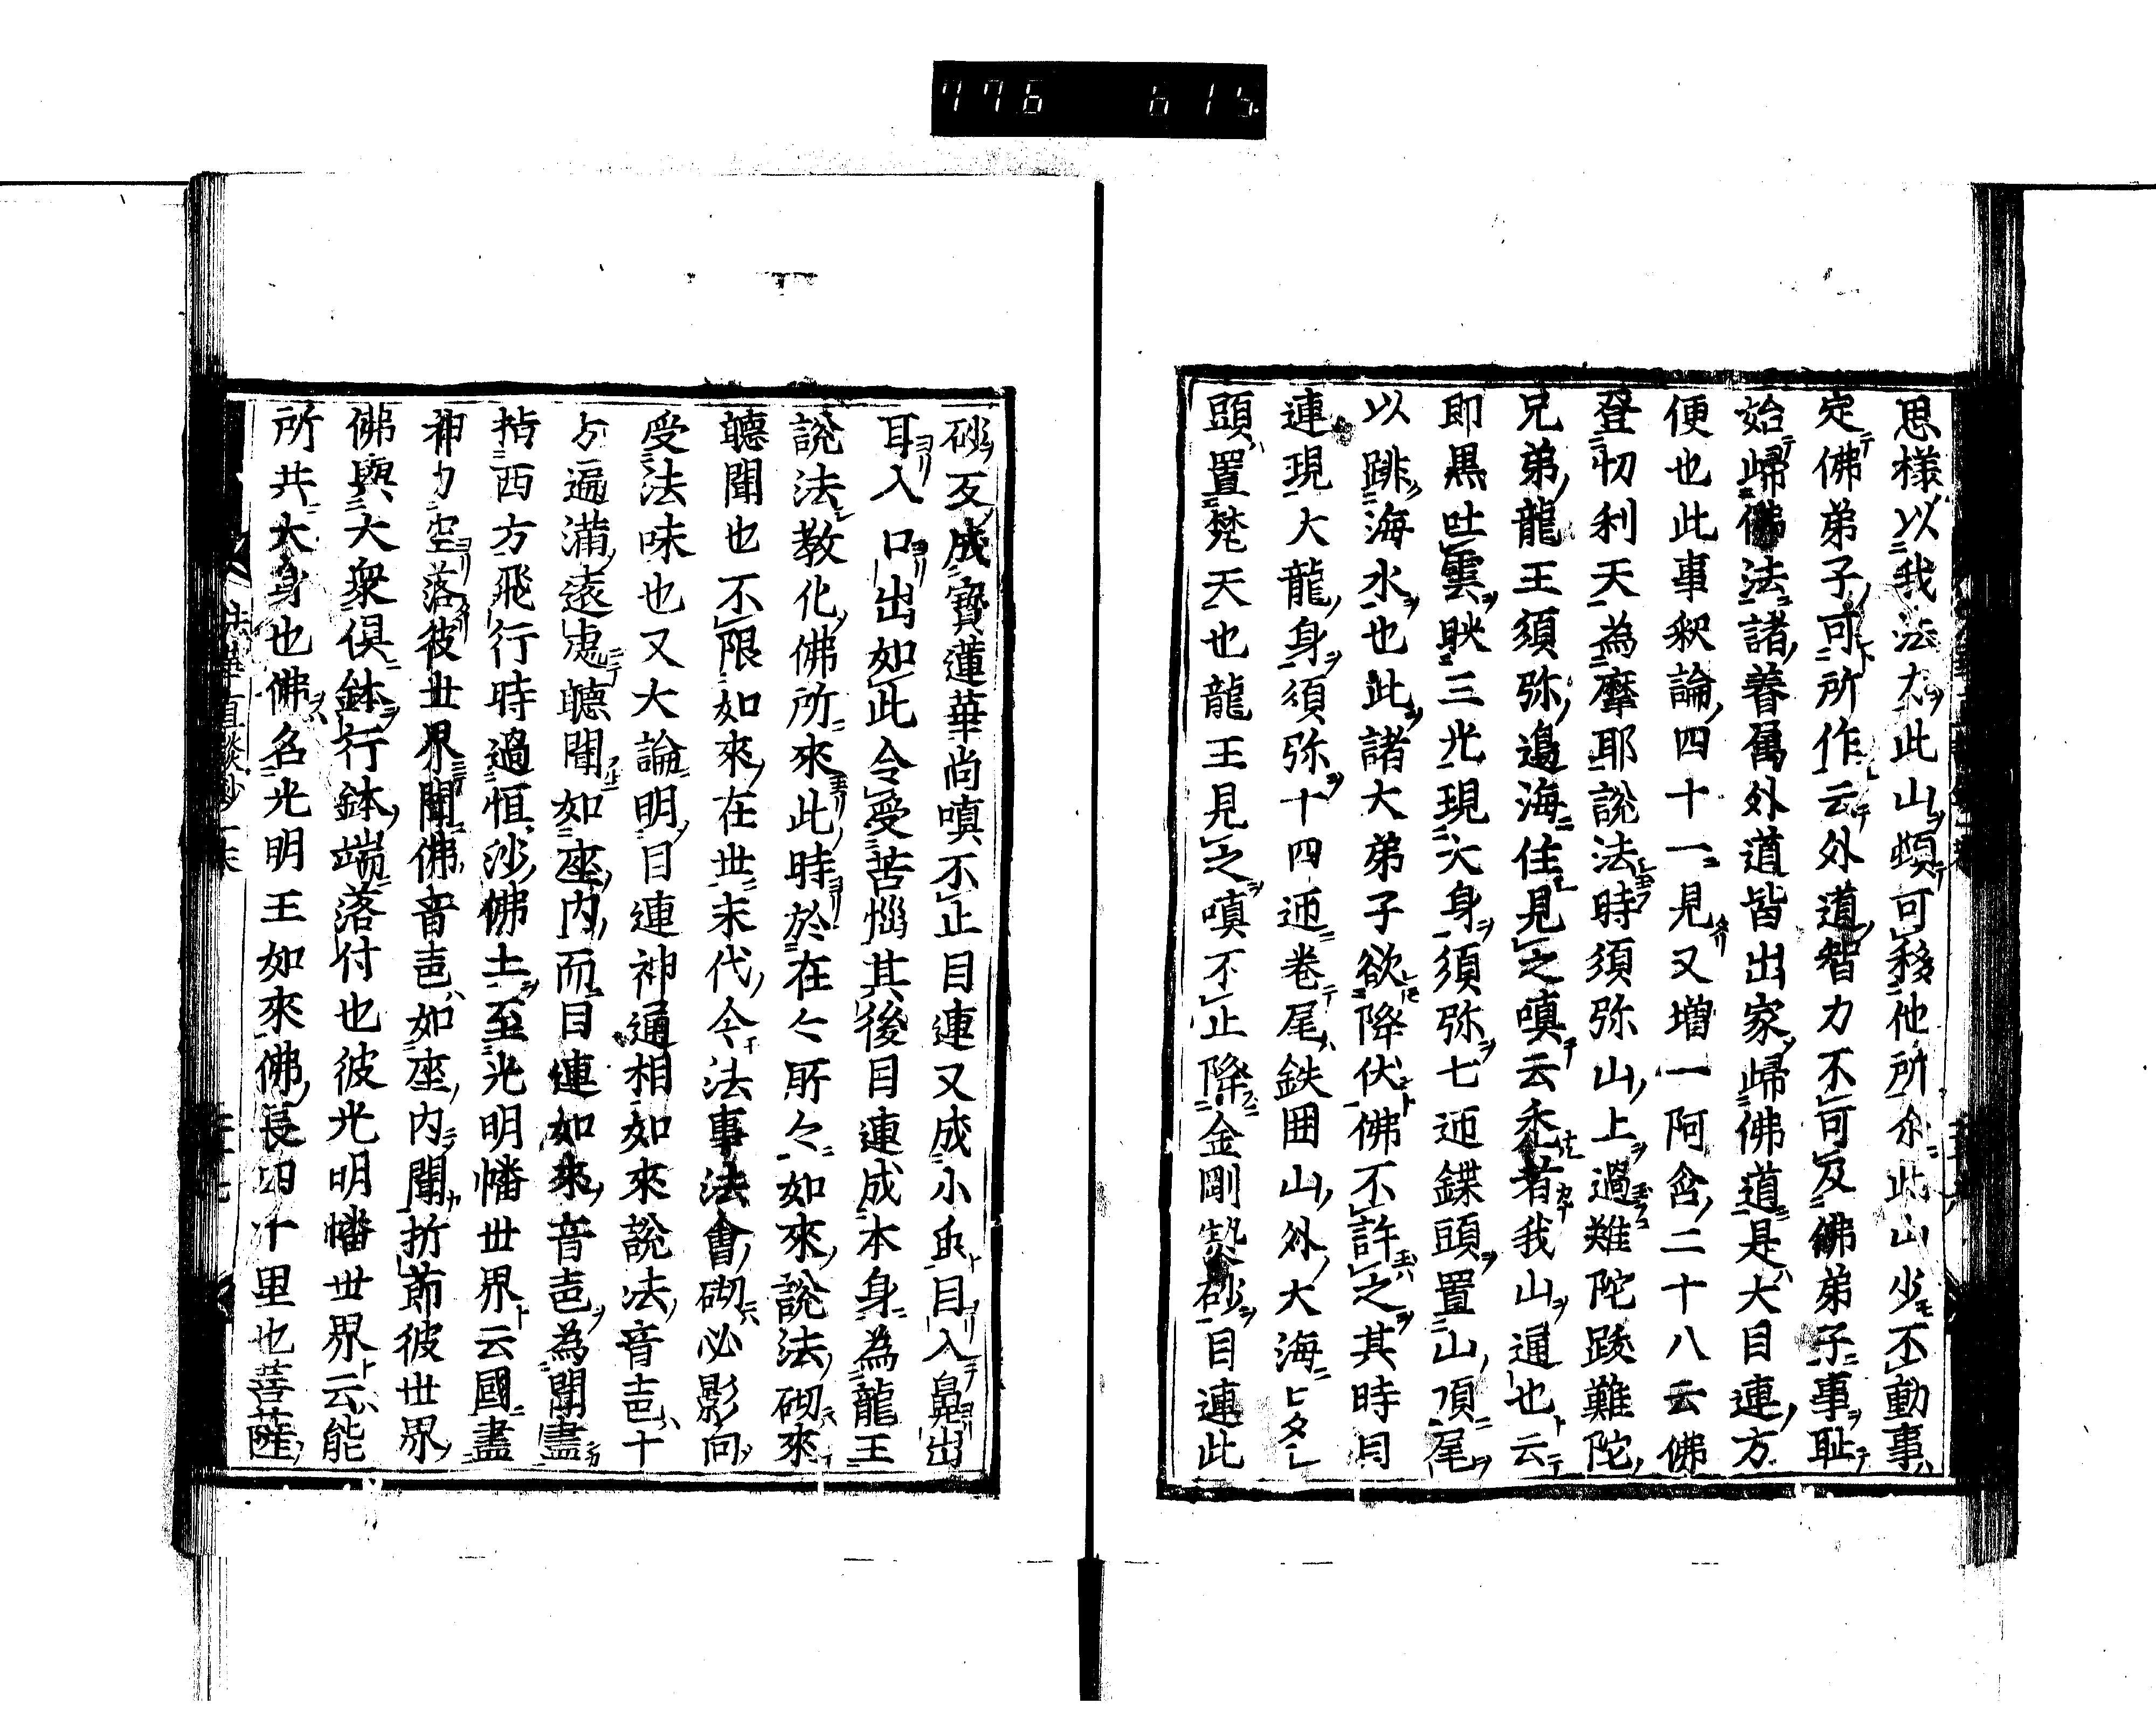 776 615
思様以我法力此山頓可移他所尒此山少不動事
定佛弟子可所作云外道智力不可及佛弟子事耻
始歸佛法諸眷属外道皆出家歸佛道是大目連方
便也此事釈論四十一見又増一阿含二十八云佛
登忉利天為摩耶說法時須弥山上過難陀跋難陀
兄弟龍王須弥邉海住見之嗔云禿若我山通也云
即黒吐雲映三光現大身須弥七迊鍱頭置山頂尾
以跳海水也此諸大弟子欲降伏佛不許之其時目
連現大龍身須弥十四迊巻尾鉄囲山外大海ヒタシ
頭置梵天也龍王見之嗔不止降金剛砂目連此
砂反成寳蓮華尚嗔不止目連又成小目入鼻出
耳入口出如此令受苦惱其後目連成本身為龍王
說法教化佛所來此時於在々所々如來說法砌來
聴聞也不限如來在世末代今法事法會砌必影向
受法味也又大論明目連神通相如來說法音声十
方遍満遠處聴聞如座内而目連如來音声為聞盡
指西方飛行時過恒沙佛土至光明幡世界云國盡
神力空落彼世界聞佛音声如座内聞折節彼世界
佛與大衆倶鉢行鉢端落付也彼光明幡世界云能
所共大身也佛名光明王如來佛長四十里也菩薩
法華直談鈔一末